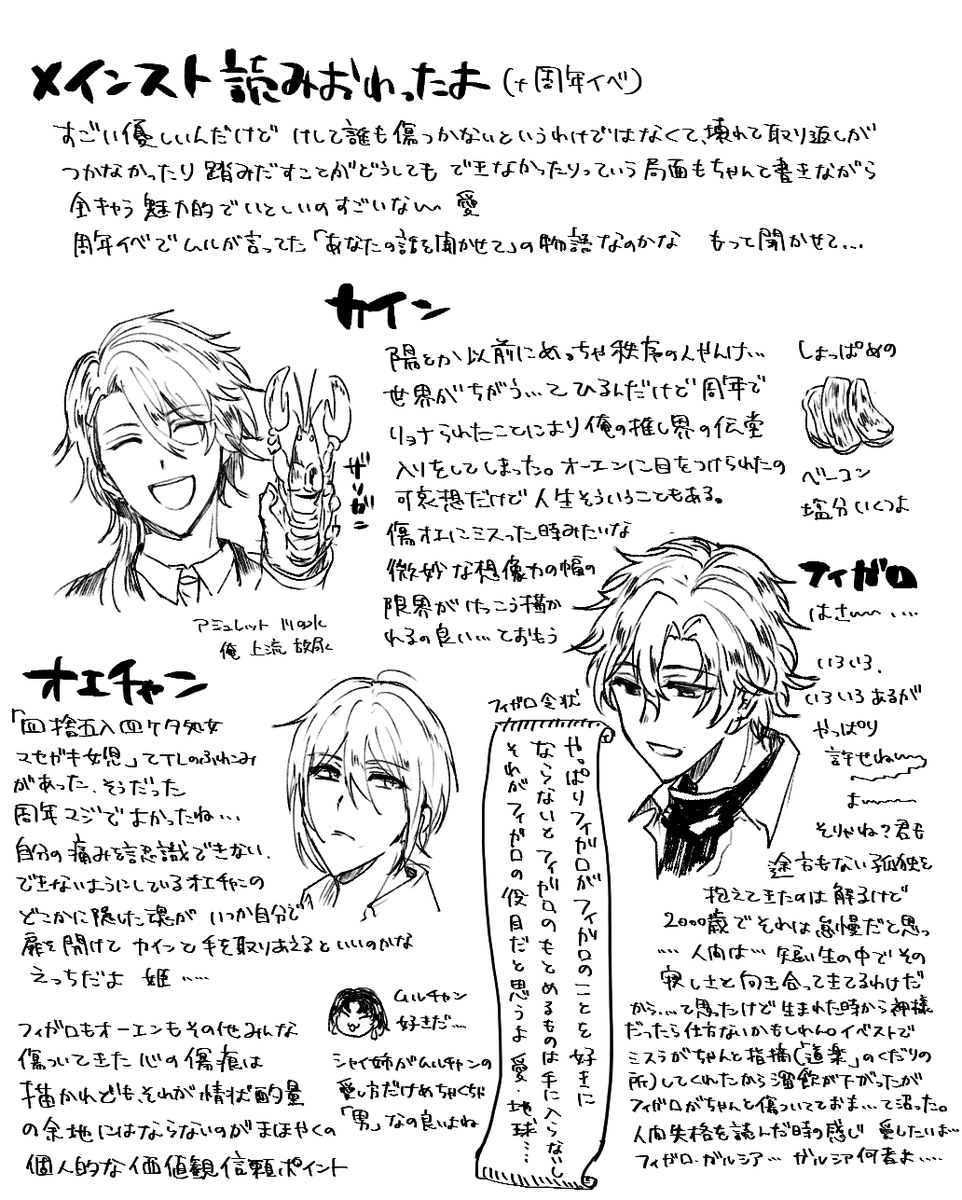 メインスト読みおわったよ(+周年イベ)
すごい優しいんだけど けして誰も傷つかないというわけではなくて、壊れて取り返しが
つかなかったり 踏みだすことがどうしても できなかったりっていう局面もちゃんと書きながら
全キャラ魅力的でいとしいのすごいな〜 愛
周年イベでムルが言ってた「あなたの話を聞かせて」の物語なのかな もっと聞かせて…
カイン
陽とか以前にめっちゃ秩序の人やんけ…
世界がちがう…て ひるんだけど周年で
リョナられたことにより俺の推し界の伝堂
入りをしてしまった。オーエンに目をつけられたの
可哀想だけど人生そういうこともある。
傷オエにミスった時みたいな
微妙な想像力の幅の
限界がけっこう描か
れるの良い…ておもう
しょっぱめの
ベーコン
塩分いくつよ
ザリガニ
アミュレット
俺 上流
オエチャン
「四捨五入四ケタ処女
マセガキ女児」てTLのふぁぼみ
があった、そうだった
周年マジでよかったね…
自分の痛みを認識できない、
できないようにしているオエチャンの
どこかに隠した魂が いつか自分で
扉を開けて カインと手を取りあえるといいのかな
えっちだよ 姫……
ムルチャン
好きだ…
シャイ姉がムルチャンの
愛し方だけめちゃくちゃ
「男」なの良いよね
フィガロもオーエンもその他みんな
傷ついてきた心の傷痕は
描かれども、それが情状酌量
の余地にはならないのがまほやくの
個人的な価値観信頼ポイント
フィガロ令状
やっぱりフィガロがフィガロのことを好きに
ならないとフィガロのもとめるものは手に入らないし
それがフィガロの役目だと思うよ 愛・地球…
フィガロ
はぁ〜〜 ….
いろいろ、
いろいろあるが
やっぱり
許せね〜〜
よ〜〜〜
そりゃね?君も
途方もない孤独を
抱えてきたのは解るけど
2000歳でそれは怠慢だと思っ
…. 人間は… 短い生の中でその
寂しさと向き合ってきてるわけだ
から…て思ったけど生まれた時から神様
だったら仕方ないかもしれん。イベストで
ミスラがちゃんと指摘(「道楽」のくだりの
所)してくれたから溜飲が下がったが
フィガロがちゃんと傷ついてておま…て沼った。
人間失格を読んだ時の感じ 愛したいよ…
フィガロ・ガルシア… ガルシア何者よ….